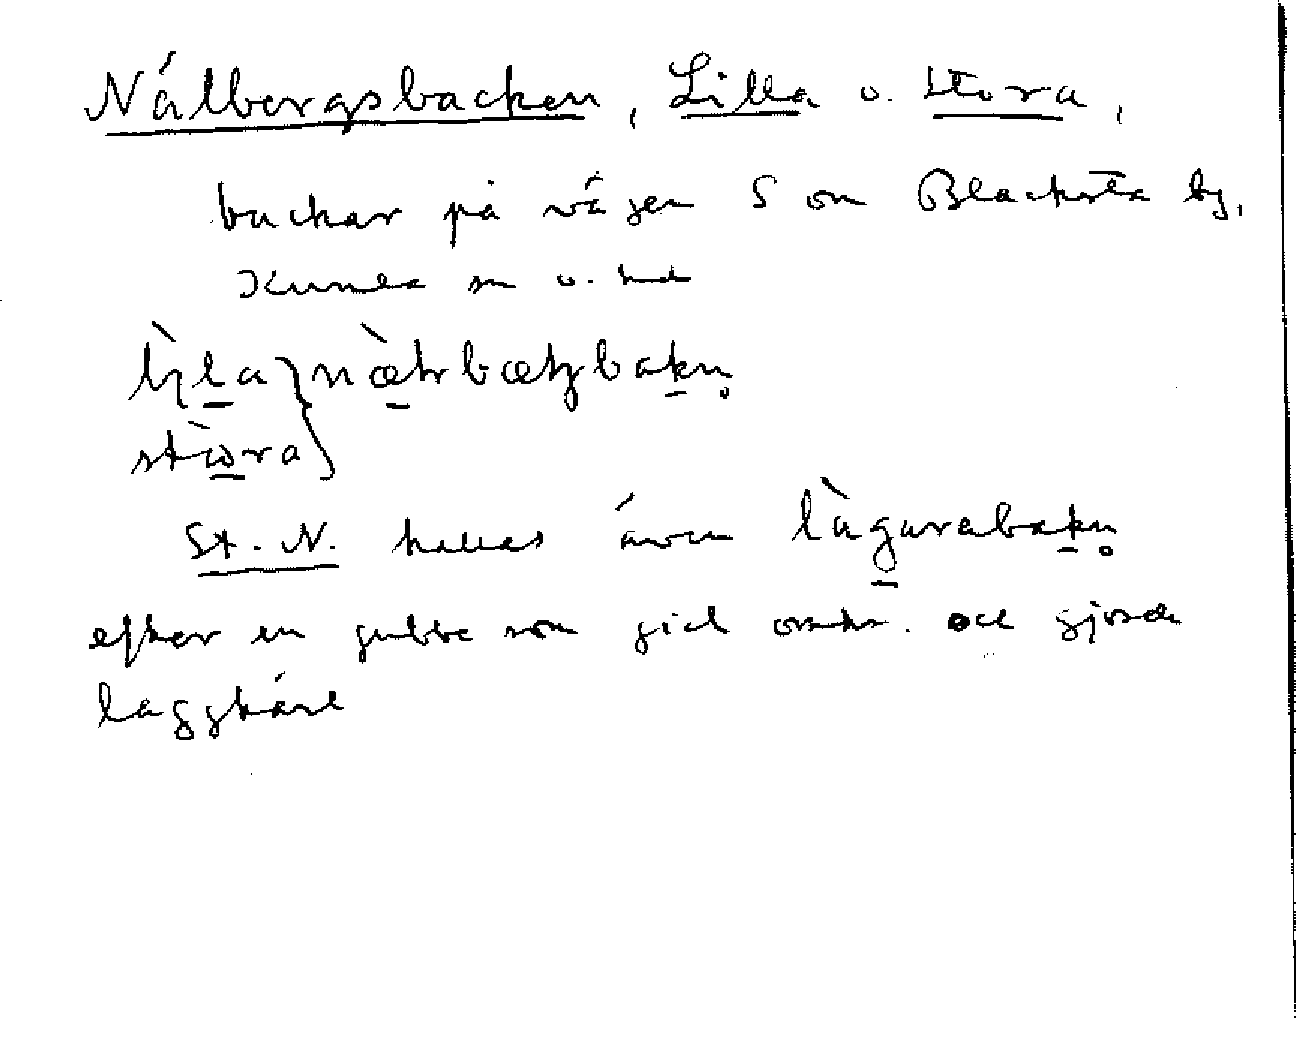 Nålbergsbacken, Lilla o. Stora,
backar på vägen S om Blacksta by,
Kumla sn o. hd
lı̀l̲a } næ̲̀lbærjsbak̲n̥
stò̲ra
St. N. kallas även là̲garabak̲n̥
efter en gubbe som gick och gjorde
laggkärl